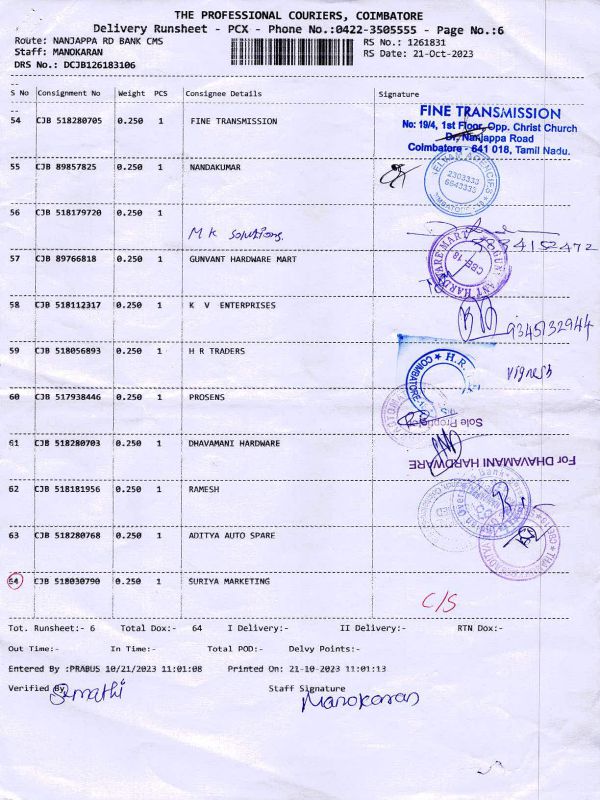 THE PROFESSIONAL COURIERS, COIMBATORE
Delivery Runsheet - PCX - Phone No.:0422-3505555 - Page No.:6
Route: NANJAPPA RD BANK CMS RS No.: 1261831
Staff: MANOKARAN RS Date: 21-Oct-2023
DRS No.: DCJB126183106
S No Consignment No Weight PCS Consignee Details Signature
54 CJB 518280705 0.250 1 FINE TRANSMISSION
FINE TRANSMISSION
No: 19/4, 1st Floor, Opp. Christ Church
Dr. Nanjappa Road
Coimbatore - 641 018, Tamil Nadu.
55 CJB 89857825 0.250 1 NANDAKUMAR
2303333
6643335
56 CJB 518179720 0.250 1
M K Solutions.
57 CJB 89766818 0.250 1 GUNVANT HARDWARE MART
CBE-18
58 CJB 518112317 0.250 1 K V ENTERPRISES
9345132944
59 CJB 518056893 0.250 1 H R TRADERS
H.R.
COIMBATORE
Vignesh
60 CJB 517938446 0.250 1 PROSENS
Sole Proprietor
61 CJB 518280703 0.250 1 DHAVAMANI HARDWARE
For DHAVAMANI HARDWARE
62 CJB 518181956 0.250 1 RAMESH
63 CJB 518280768 0.250 1 ADITYA AUTO SPARE
64 CJB 518030790 0.250 1 SURIYA MARKETING
C/S
Tot. Runsheet:- 6 Total Dox:- 64 I Delivery:- II Delivery:- RTN Dox:-
Out Time:- In Time:- Total POD:- Delvy Points:-
Entered By :PRABUS 10/21/2023 11:01:08 Printed On: 21-10-2023 11:01:13
Verified By Staff Signature
Manokaran